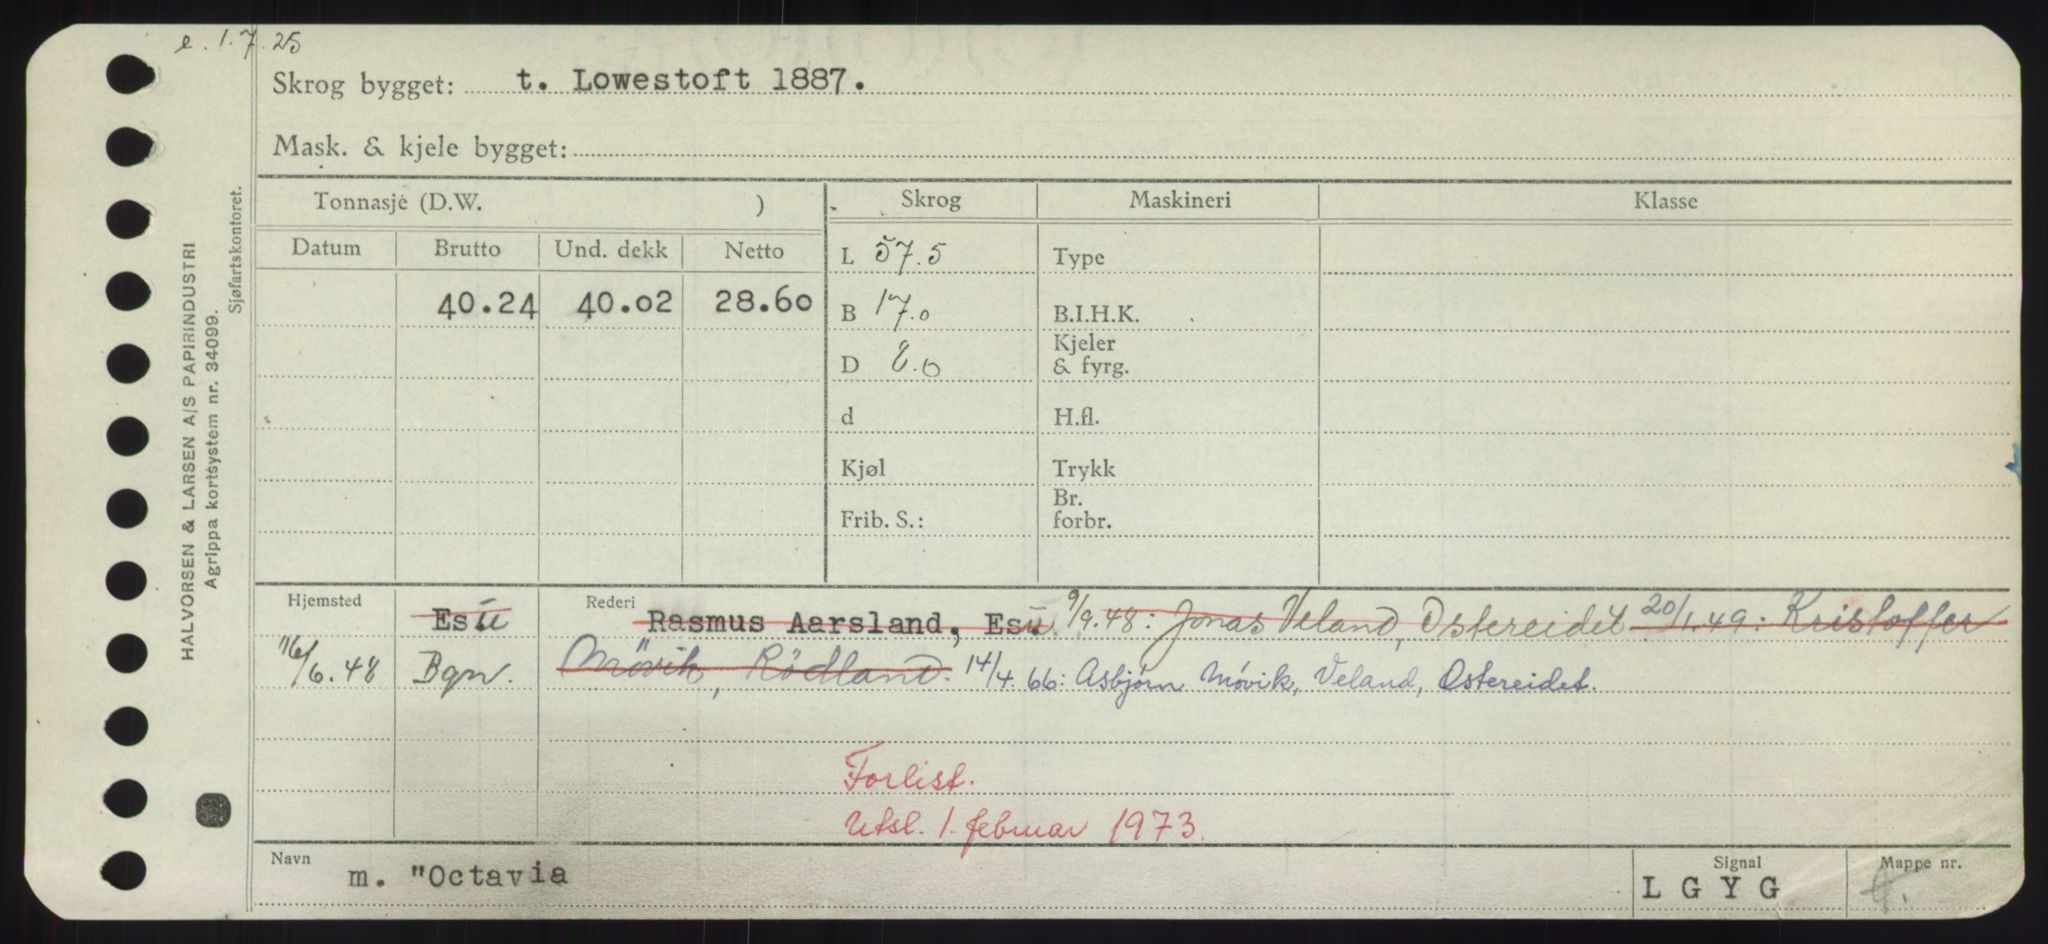 e. 1.7.25
Skrog bygget: t. Lowestoft 1887.
Mask. & kjele bygget:
HALVORSEN & LARSEN A/S PAPIRINDUSTRI
Agrippa kortsystem nr. 34099.
Sjøfartskontoret.
Tonnasje (D.W. ) Skrog Maskineri Klasse
Datum Brutto Und. dekk Netto L 57.5 Type
40.24 40.02 28.60 B 17.0 B.I.H.K.
D 8.0 Kjeler & fyrg.
d H.fl.
Kjøl Trykk
Frib. S.: Br. forbr.
Hjemsted Esü Rederi Rasmus Aarsland, Esü. 9/9.48: Jonas Veland, Ostereidet 20/1.49: Kristoffer
16/6.48 Bgn. Mövik, Rödland. 14/4.66: Asbjørn Móvik, Veland, Ostereidet.
Forlist.
Utsl. 1. februar 1973.
Navn m. "Octavia Signal LGYG Mappe nr. 4.